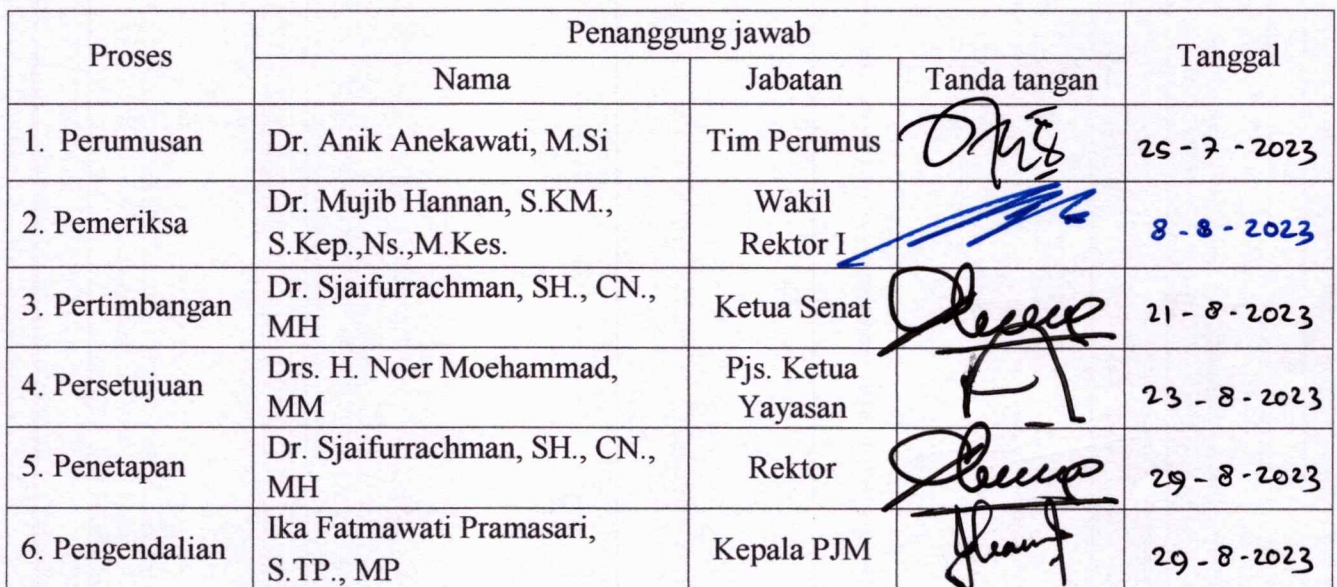 Proses Penanggung jawab Tanggal
Nama Jabatan Tanda tangan
1. Perumusan Dr. Anik Anekawati, M.Si Tim Perumus 25-7-2023
2. Pemeriksa Dr. Mujib Hannan, S.KM., Wakil
S.Kep.,Ns.,M.Kes. Rektor I 8-8-2023
3. Pertimbangan Dr. Sjaifurrachman, SH., CN., Ketua Senat 21-8-2023
MH
4. Persetujuan Drs. H. Noer Moehammad, Pjs. Ketua 23-8-2023
MM Yayasan
5. Penetapan Dr. Sjaifurrachman, SH., CN., Rektor 29-8-2023
MH
6. Pengendalian Ika Fatmawati Pramasari, Kepala PJM 29-8-2023
S.TP., MP